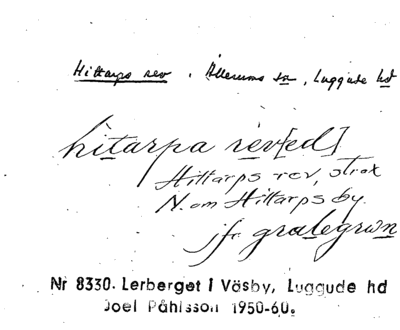 Hittarps rev, Allerums sn, Luggude hd
hitarpa rev[ed]
Hittarps rev, strax
N. om Hittarps by.
jfr gralegrun
Nr 8330. Lerberget i Väsby, Luggude hd
Joel Påhlsson 1950-60.